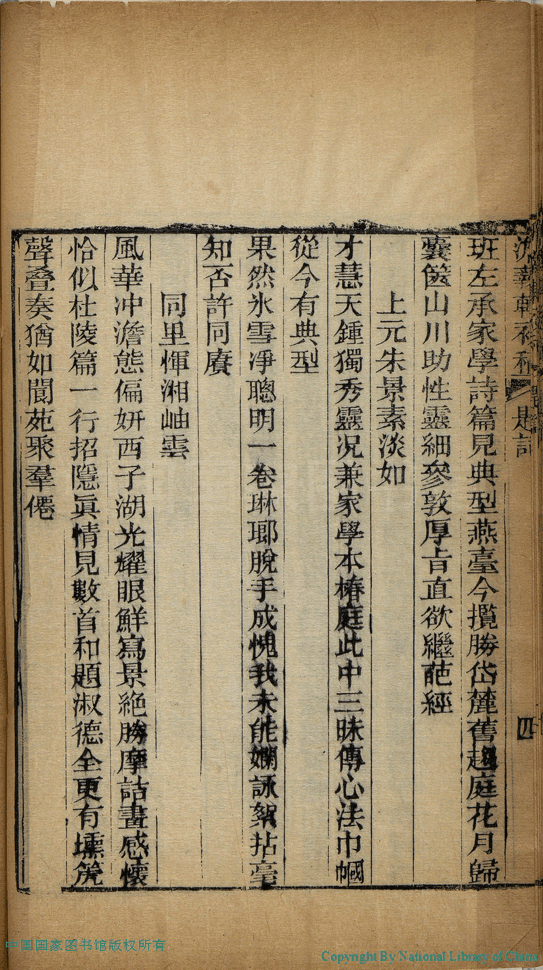 題詞
四
班左承家學詩篇見典型燕臺今攬勝岱麓舊趨庭花月歸
囊篋山川助性靈細參敦厚旨直欲繼葩經
上元朱景素淡如
才慧天鍾獨秀靈況兼家學本椿庭此中三昧傳心法巾幗
從今有典型
果然氷雪凈聰明一卷琳瑯脫手成愧我未能嫻詠絮拈毫
知否許同賡
同里惲湘岫雲
風華冲澹態偏妍西子湖光耀眼鮮寫景絶勝摩詰畫感懷
恰似杜陵篇一行招隱眞情見數首和題淑德全更有壎篪
聲叠奏猶如閬苑聚羣僊
中國国家图书馆版权所有
Copyright By National Library of China